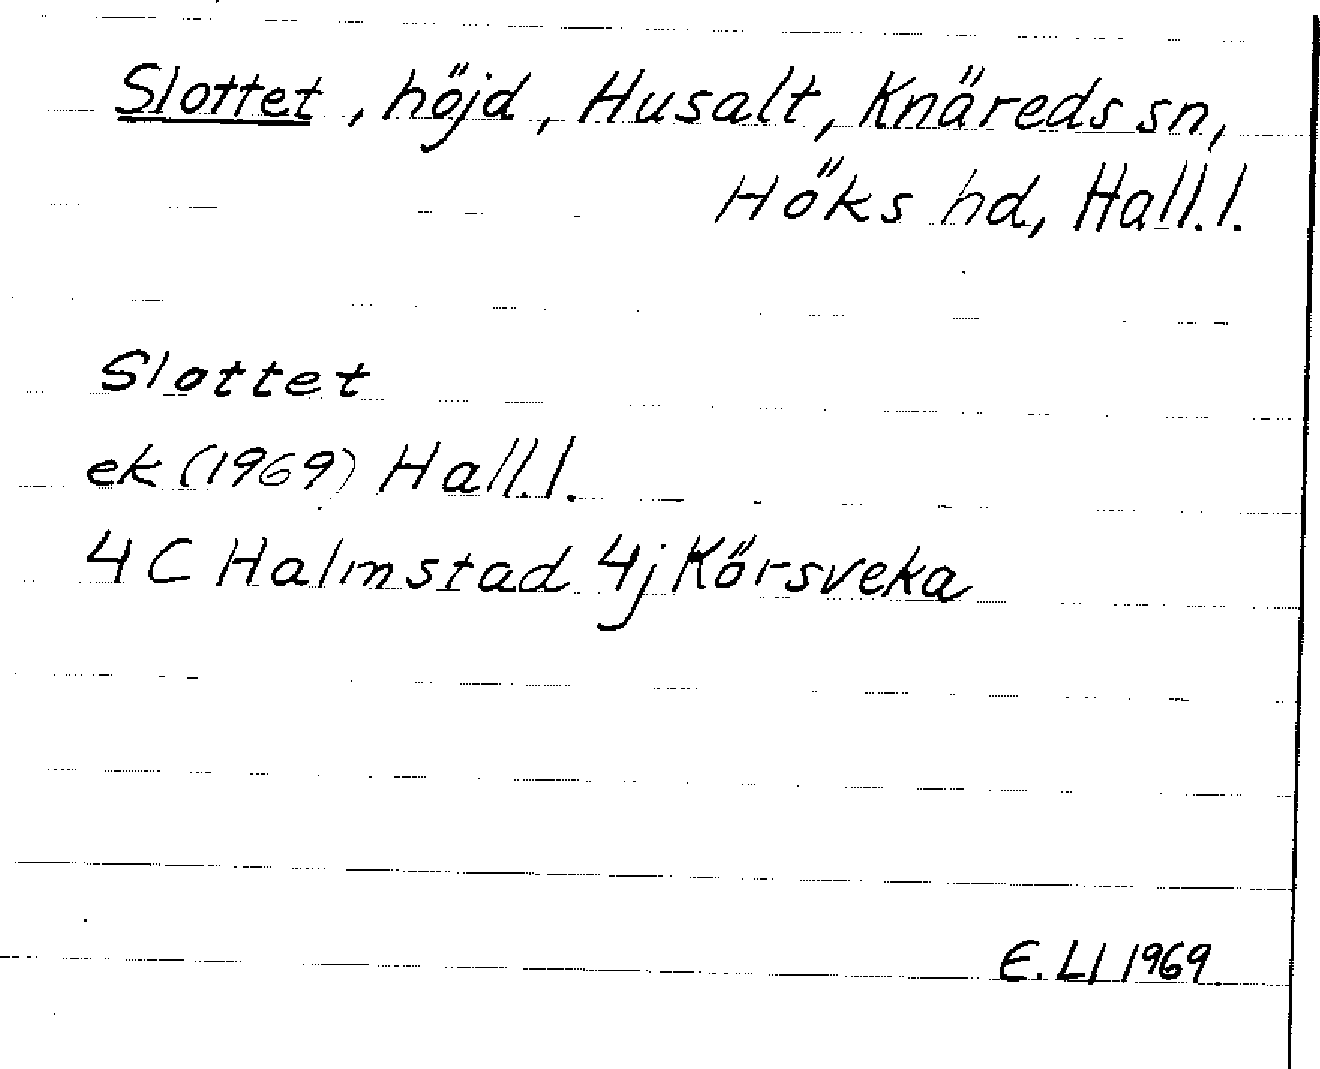 Slottet, höjd, Husalt, Knäreds sn,
Höks hd, Hall.l.
Slottet
ek (1969) Hall.l.
4 C Halmstad 4j Körsveka
E. Lj 1969